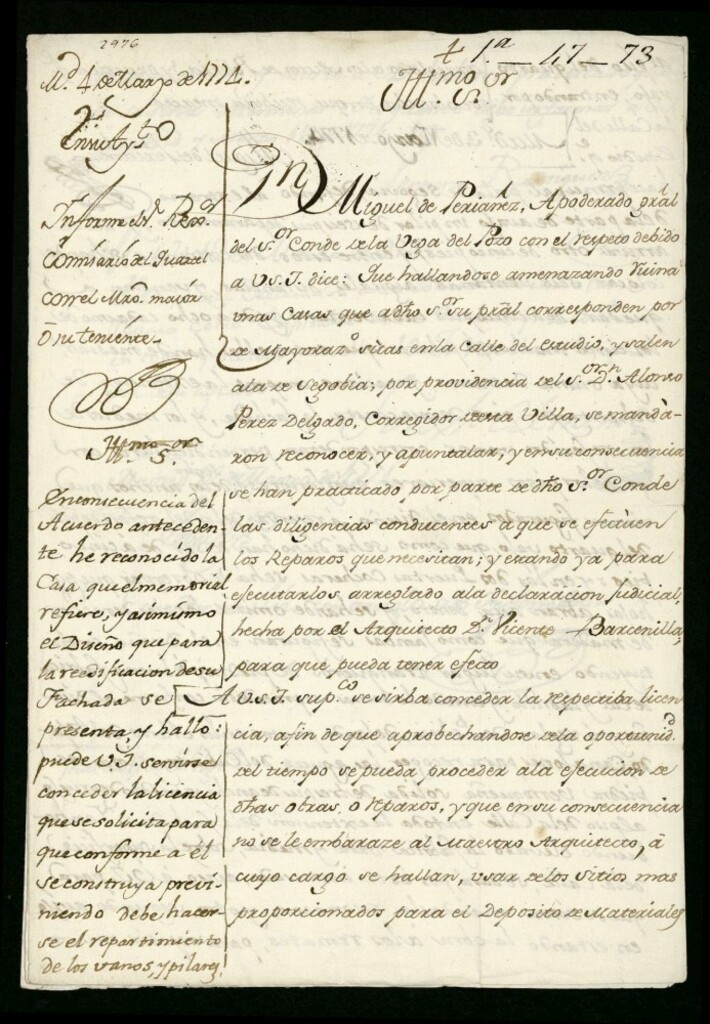 2976
1ª — 47 — 73
Md. 4 de Marzo de 1774.
Illmo. Sor.
En su Aytto
Informe el Sr. Rexor
Comisario del Quartel
con el Mro. mayor
ô su teniente.
Illmo. Sor.
En consecuencia del
Acuerdo anteceden-
te he reconocido la
Casa que el memorial
refiere, y asimismo
el Diseño que para
la reedificacion de su
Fachada se
presenta, y hallo:
puede V.I. servirse
conceder la licencia
que se solicita para
que conforme a él
se construya previ-
niendo debe hacer-
se el repartimiento
de los vanos, y pilares,
Dn Miguel de Periañez, Apoderado gral
del Sor. Conde de la Vega del Pozo con el respeto debido
a V.S.I. dice: Que hallandose amenazando ruina
unas Casas que a dho Sor. su pral corresponden por
de Mayorazo. sitas en la Calle del estudio, y salen
a la de Segobia; por providencia del Sor. Dn. Alonso
Perez Delgado, Corregidor de esta Villa, se manda-
ron reconocer, y apuntalar, y en su consecuencia
se han practicado por parte de dho Sor. Conde
las diligencias conducentes a que se efectuen
los Reparos que necesitan; y estando ya para
ejecutarlos arreglado a la declaracion Judicial,
hecha por el Arquitecto Dn. Vicente Barcenilla,
para que pueda tener efecto
A V.S.I. supco. se sirba conceder la respectiba licen-
cia, a fin de que aprobechandose de la oportunidd.
del tiempo se pueda proceder a la ejecucion de
dhas obras, o reparos, y que en su consecuencia
no se le embaraze al Maestro Arquitecto, â
cuyo cargo se hallan, usar de los sitios mas
proporcionados para el Deposito de Materiales